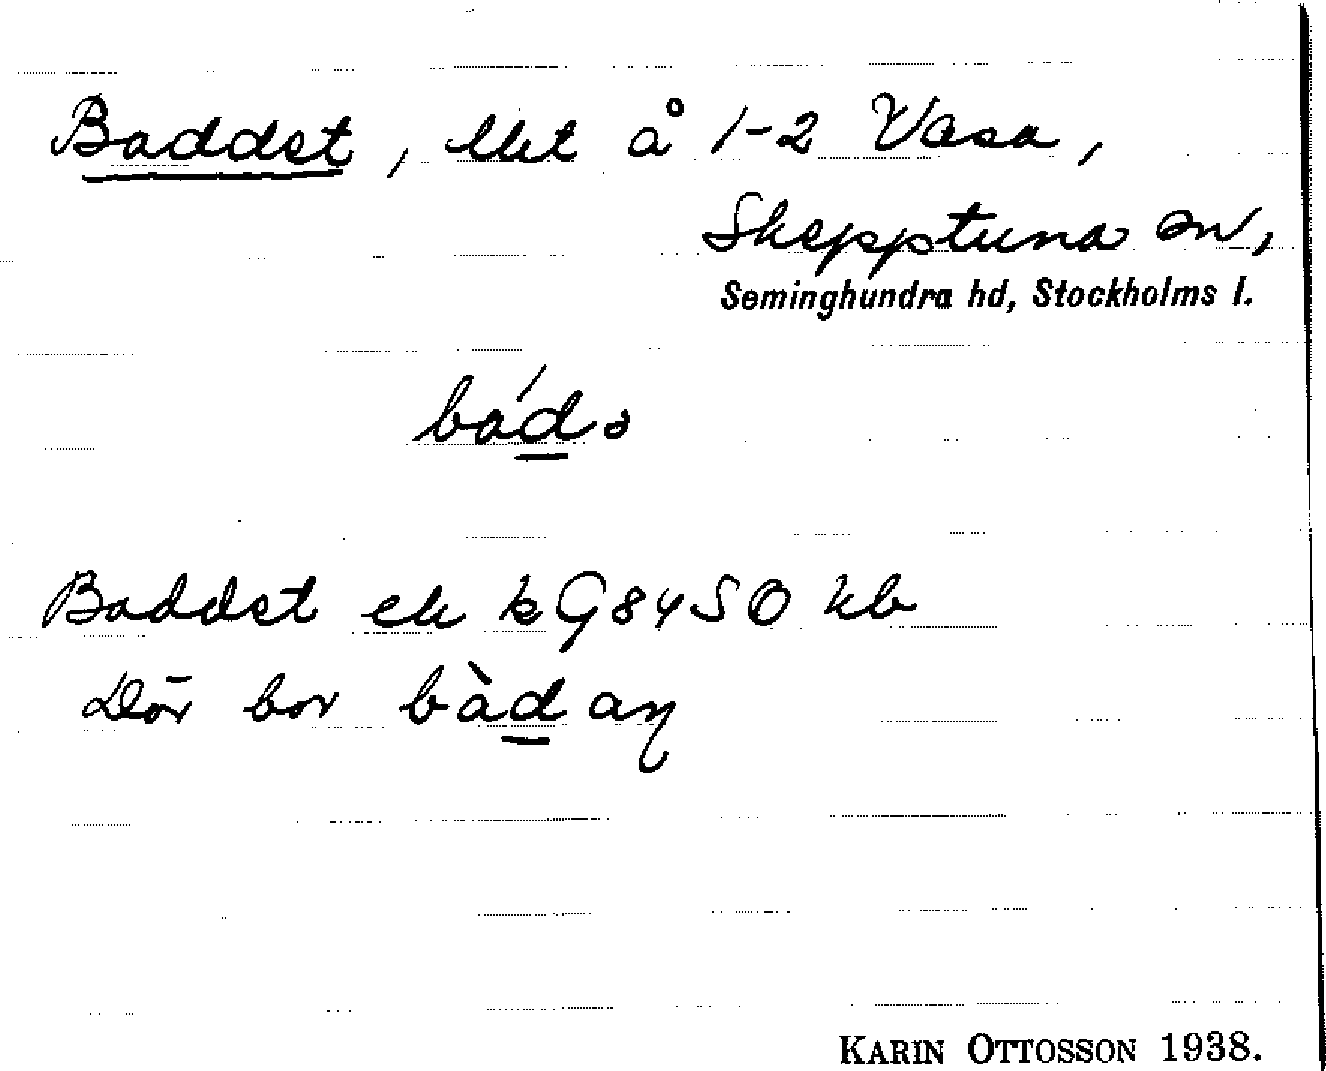 Baddet, lht å 1-2 Vasa,
Skepptuna sn,
Seminghundra hd, Stockholms l.
bád.ə
Baddet ek k G8450 kb
Där bor bàdaŋ
KARIN OTTOSSON 1938.